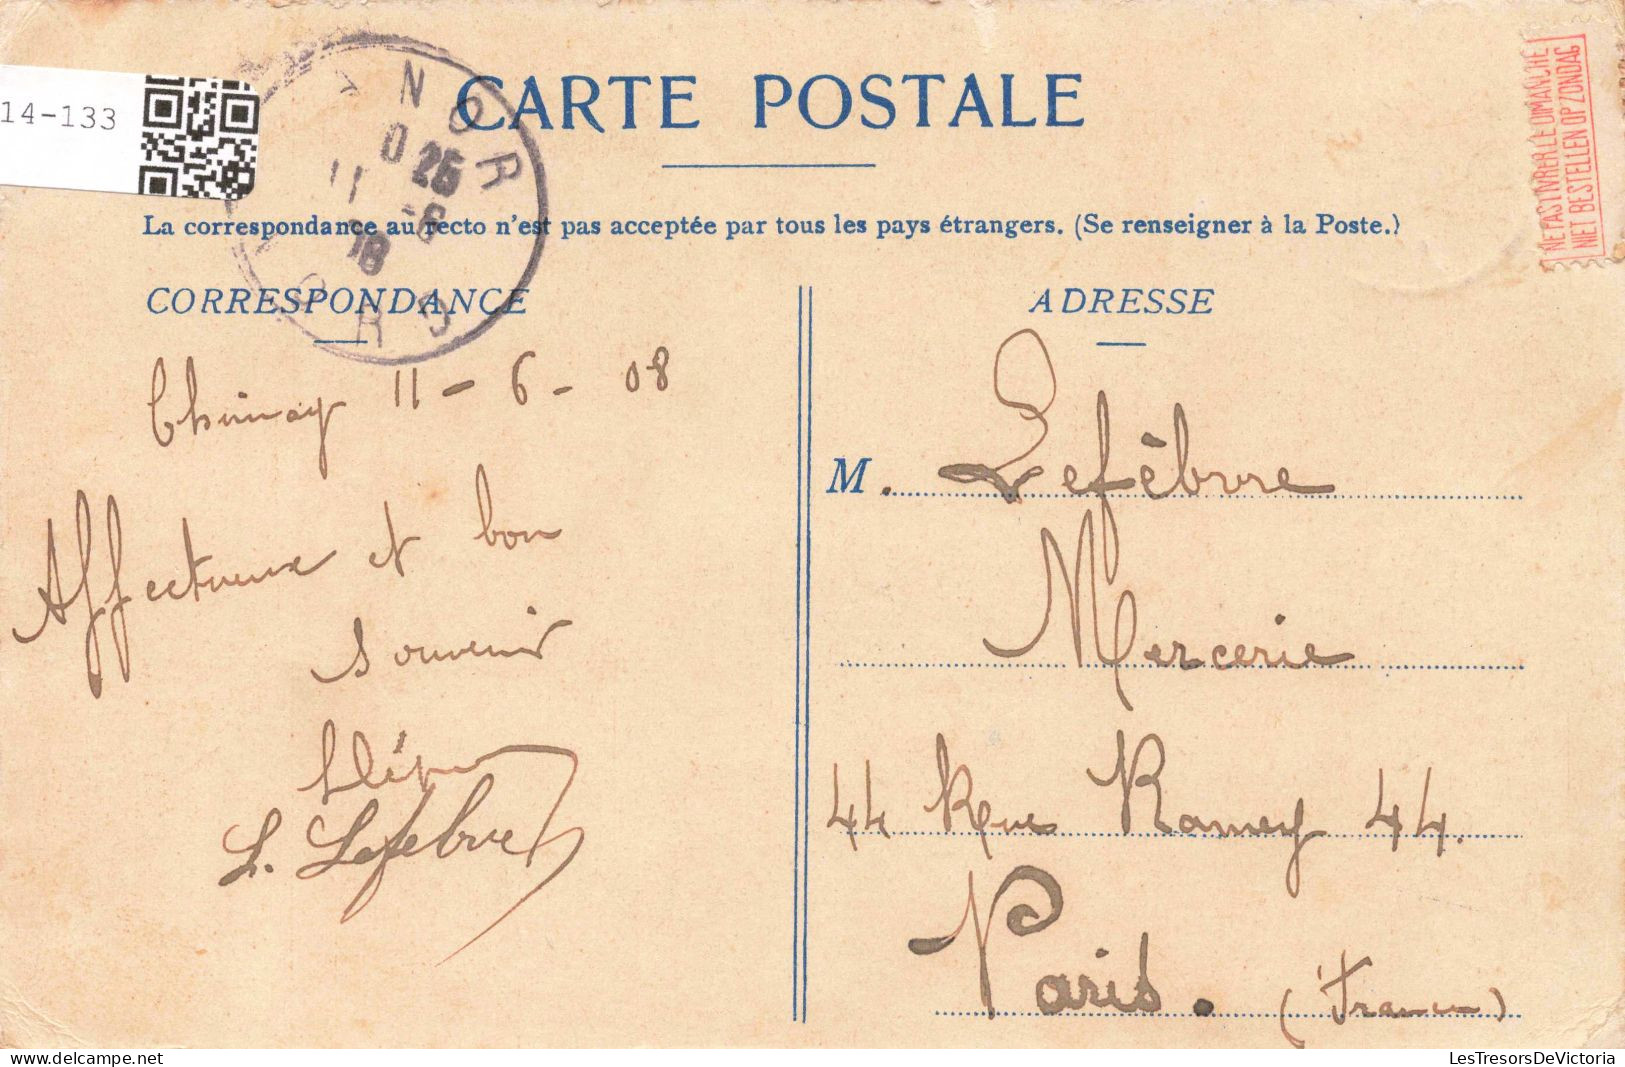 14-133
CARTE POSTALE
NORD
0 25
11 -6
08
NORD
NE PAS LIVRER LE DIMANCHE
NIET BESTELLEN OP ZONDAG
La correspondance au recto n'est pas acceptée par tous les pays étrangers. (Se renseigner à la Poste.)
CORRESPONDANCE
Chimay 11 - 6 - 08
Affectueux et bon
souvenir
L. Lefebvre
ADRESSE
M. Lefèbvre
Mercerie
44 Rue Ramey 44.
Paris. (France)
LesTresorsDeVictoria